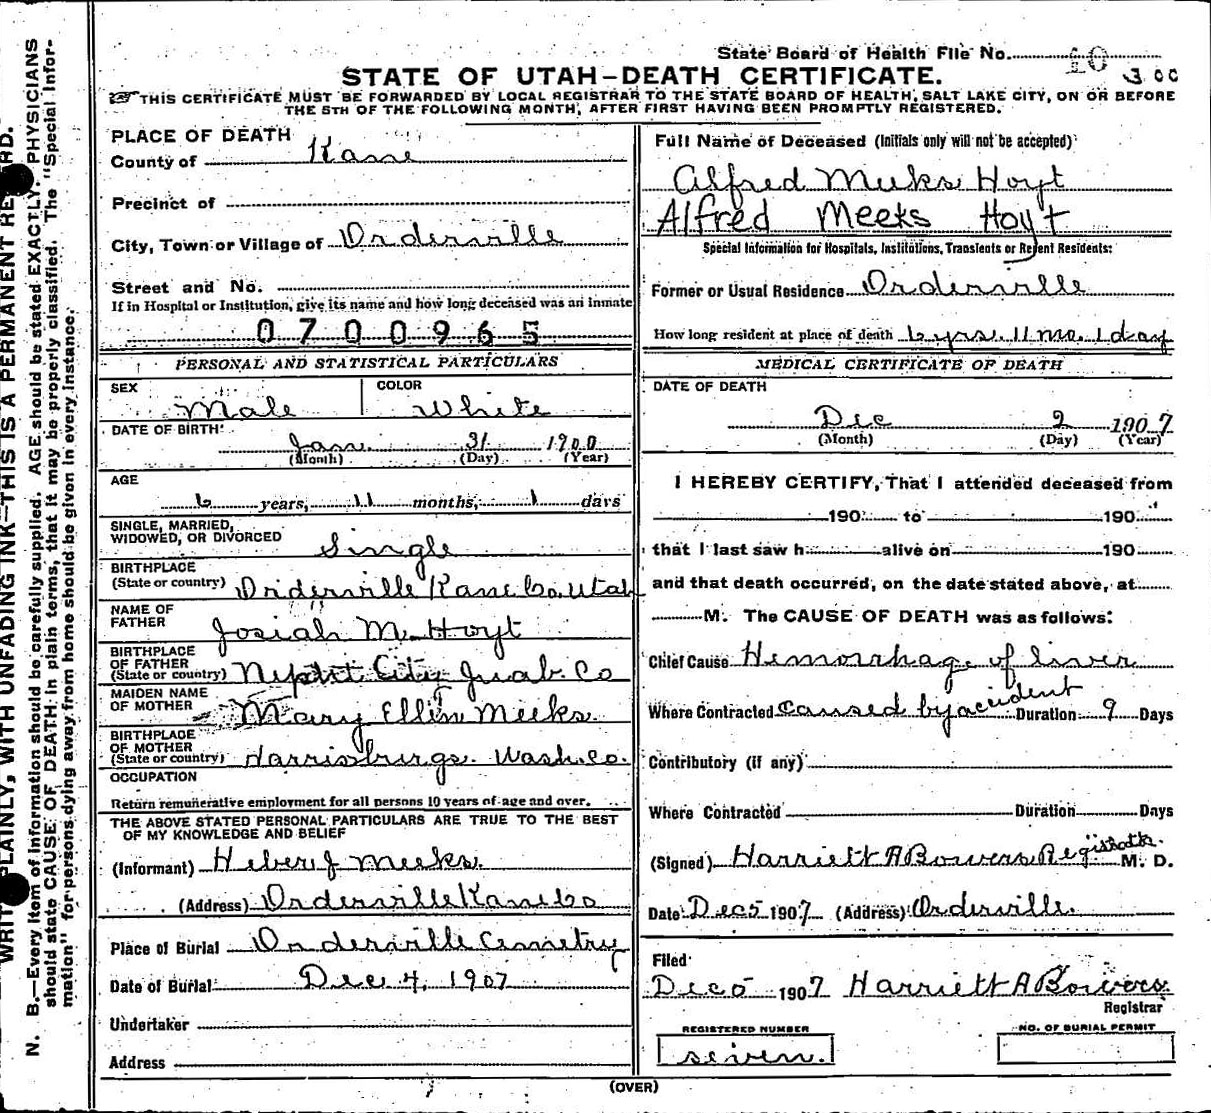 State Board of Health File No. 10
300
STATE OF UTAH—DEATH CERTIFICATE.
THIS CERTIFICATE MUST BE FORWARDED BY LOCAL REGISTRAR TO THE STATE BOARD OF HEALTH, SALT LAKE CITY, ON OR BEFORE
THE 5TH OF THE FOLLOWING MONTH, AFTER FIRST HAVING BEEN PROMPTLY REGISTERED.
PLACE OF DEATH
County of Kane
Precinct of
City, Town or Village of Orderville
Street and No.
If in Hospital or Institution, give its name and how long deceased was an inmate
0700965
PERSONAL AND STATISTICAL PARTICULARS
SEX Male
COLOR White
DATE OF BIRTH
Jan. 31 1900
(Month) (Day) (Year)
AGE
6 years, 11 months, 1 days
SINGLE, MARRIED,
WIDOWED, OR DIVORCED Single
BIRTHPLACE
(State or country) Orderville Kane Co. Utah
NAME OF
FATHER Josiah M. Hoyt
BIRTHPLACE
OF FATHER
(State or country) Nephi City Juab. Co
MAIDEN NAME
OF MOTHER Mary Ellin Meeks.
BIRTHPLACE
OF MOTHER
(State or country) Harrisburgs. Wash. Co.
OCCUPATION
Return remunerative employment for all persons 10 years of age and over.
THE ABOVE STATED PERSONAL PARTICULARS ARE TRUE TO THE BEST
OF MY KNOWLEDGE AND BELIEF
(Informant) Heber J Meeks.
(Address) Orderville Kane Co
Place of Burial Orderville Cemetry
Date of Burial Dec 4, 1907
Undertaker
Address
Full Name of Deceased (Initials only will not be accepted)
Alfred Meeks Hoyt
Alfred Meeks Hoyt
Special Information for Hospitals, Institutions, Transients or Recent Residents:
Former or Usual Residence Orderville
How long resident at place of death 6 yrs. 11 mo. 1 day
MEDICAL CERTIFICATE OF DEATH
DATE OF DEATH
Dec 2 1907
(Month) (Day) (Year)
I HEREBY CERTIFY, That I attended deceased from
190 to 190
that I last saw h alive on 190
and that death occurred, on the date stated above, at
M. The CAUSE OF DEATH was as follows:
Chief Cause Hemorrhage of liver
Where Contracted caused by accident Duration 9 Days
Contributory (if any)
Where Contracted Duration Days
(Signed) Harriett A Bowers Registrar. M. D.
Date Dec 5 1907 (Address) Orderville.
Filed
Dec 5 1907 Harriett A Bowers.
Registrar
REGISTERED NUMBER
seven.
NO. OF BURIAL PERMIT
(OVER)
PLAINLY, WITH UNFADING INK—THIS IS A PERMANENT
N. B.—Every item of information should be carefully supplied. AGE should be stated EXACTLY. PHYSICIANS
should state CAUSE OF DEATH in plain terms, that it may be properly classified. The "Special Infor-
mation" for persons dying away from home should be given in every instance.